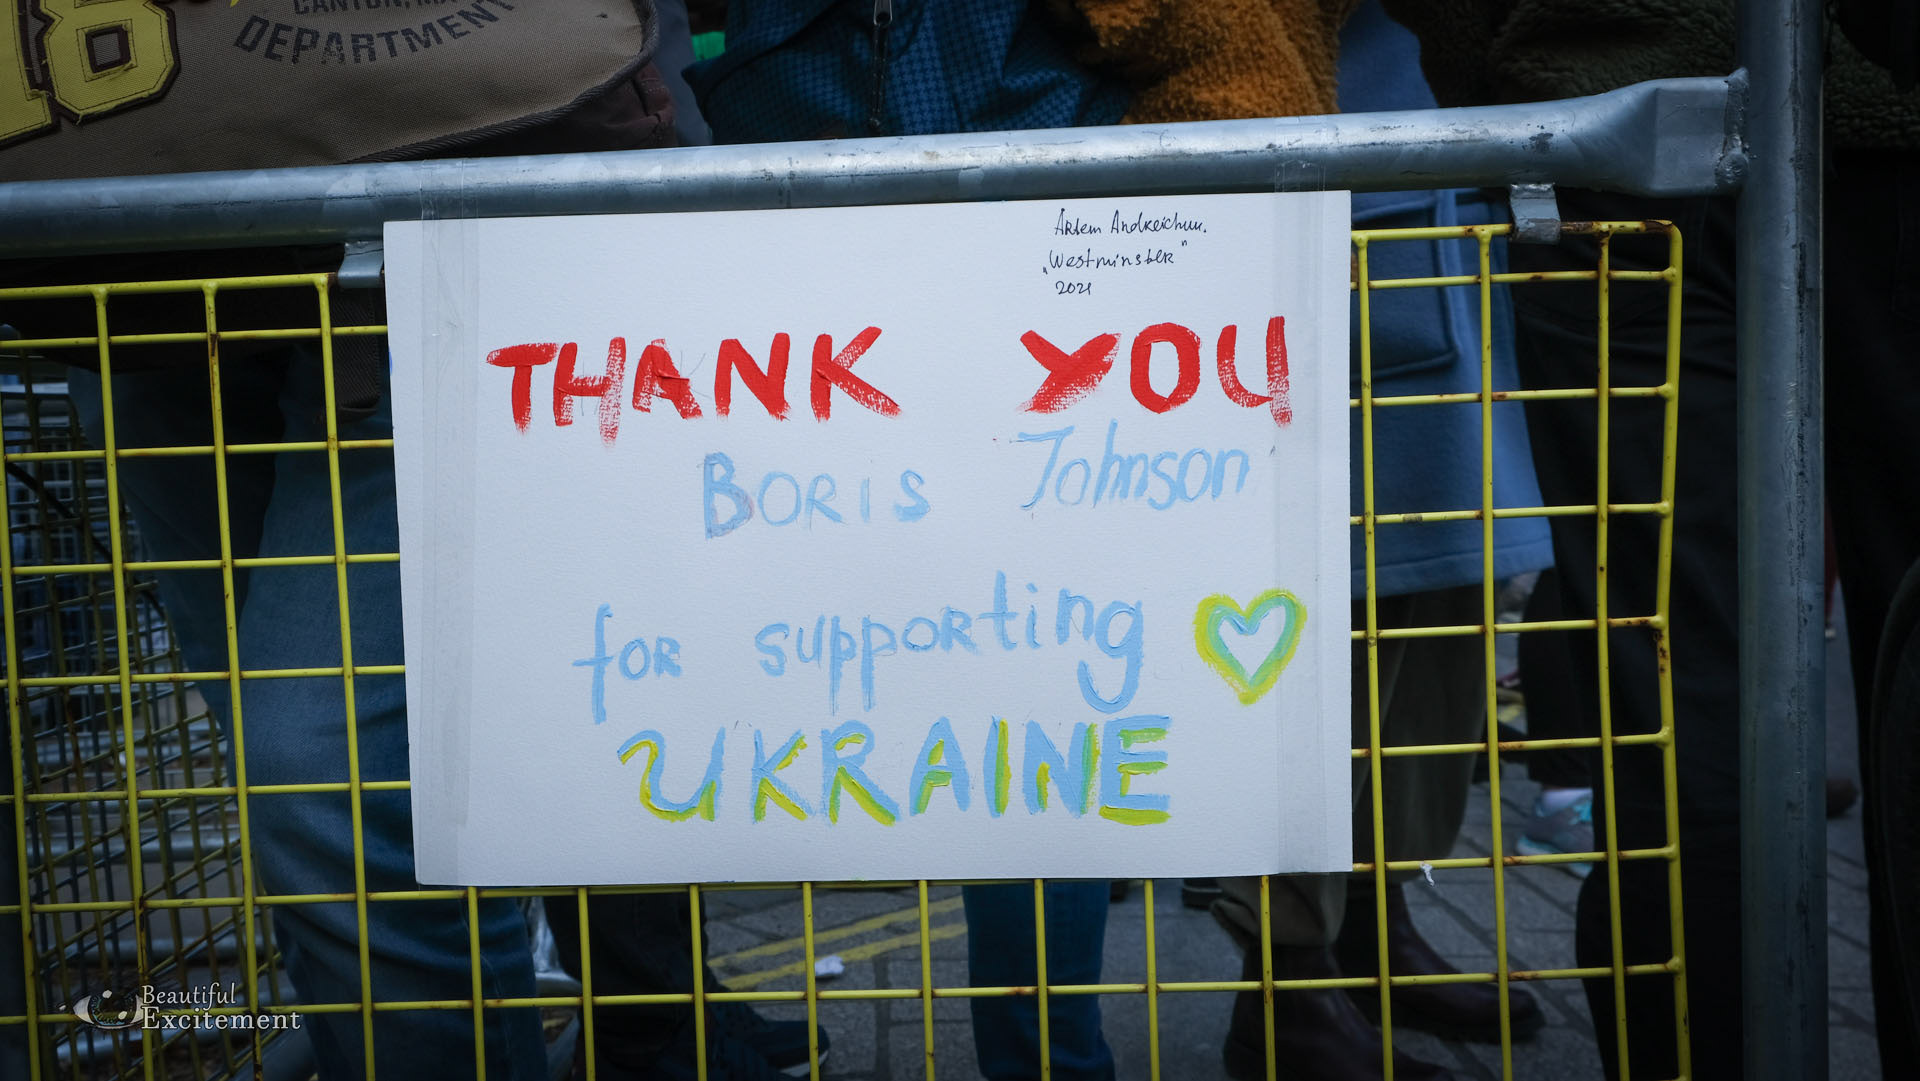 18
CANTON, MA
DEPARTMENT
Artem Andreichuk.
„Westminster"
2021
THANK YOU
BORIS Johnson
for supporting
UKRAINE
Beautiful
Excitement